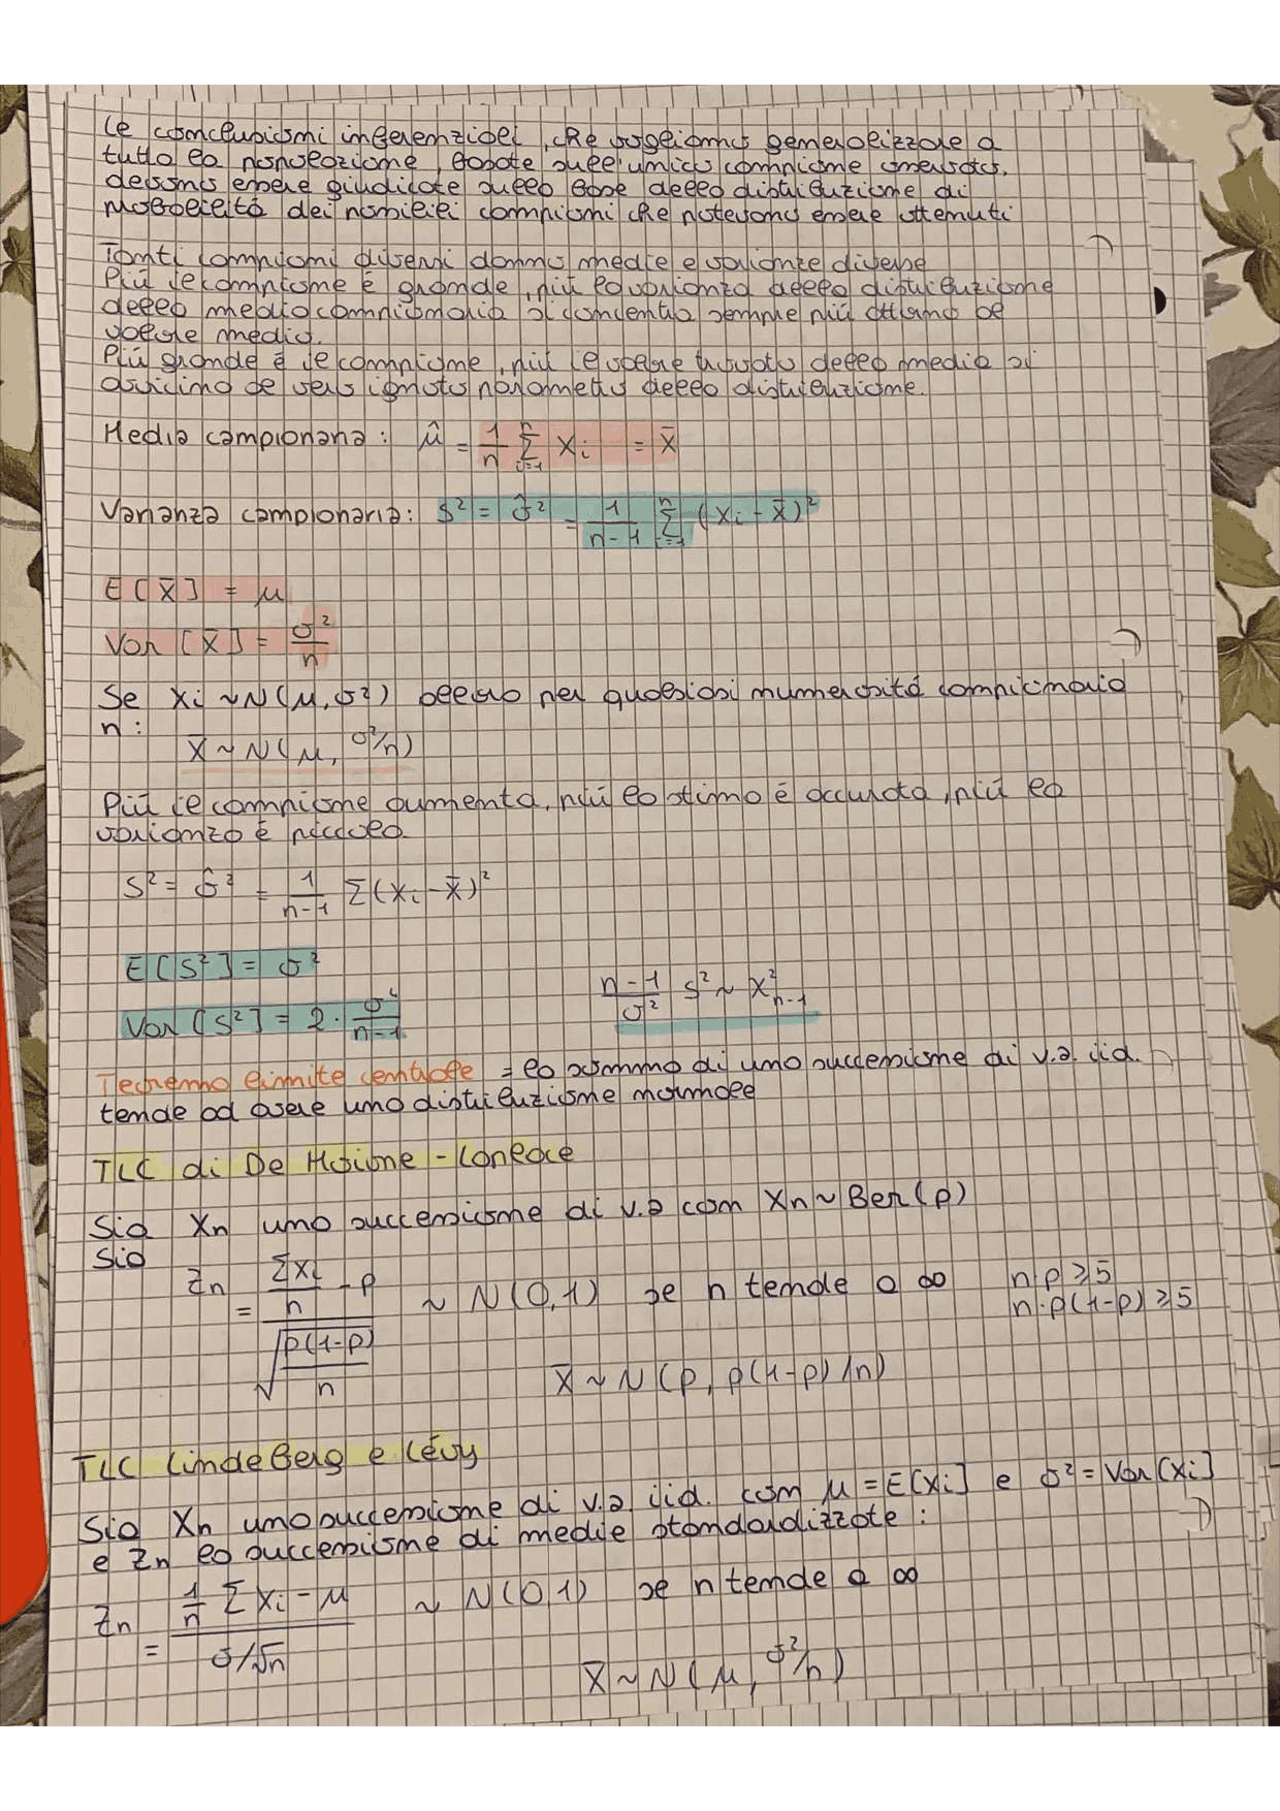 le conclusioni inferenziali, che vogliamo generalizzare a
tutta la popolazione, basate sull'unico campione osservato,
devono essere giudicate sulla base della distribuzione di
probabilità dei possibili campioni che potevano essere ottenuti
Tanti campioni diversi danno medie e varianze diverse
Più il campione è grande, più la varianza della distribuzione
della media campionaria si concentra sempre più attorno al
valore medio.
Più grande è il campione, più il valore trovato della media si
avvicina al vero ignoto parametro della distribuzione.
Media campionaria: μ̂ = 1/n Σ_{i=1}^{n} Xi = X̄
Varianza campionaria: S² = σ̂² = 1/(n-1) Σ_{i=1}^{n} (Xi - X̄)²
E[X̄] = μ
Var[X̄] = σ²/n
Se Xi ~ N(μ, σ²) allora per qualsiasi numerosità campionaria
n:
X̄ ~ N(μ, σ²/n)
Più il campione aumenta, più la stima è accurata, più la
varianza è piccola.
S² = σ̂² = 1/(n-1) Σ(Xi - X̄)²
E[S²] = σ²
(n-1)/σ² S² ~ X²_{n-1}
Var[S²] = 2 · σ⁴/(n-1)
Teorema limite centrale = la somma di una successione di v.a. iid.
tende ad avere una distribuzione normale
TLC di De Moivre - Laplace
Sia Xn una successione di v.a con Xn ~ Ber(p)
Sia
Zn = (ΣXi/n - p) / √(p(1-p)/n) ~ N(0,1) se n tende a ∞ n·p ≥ 5
n·p(1-p) ≥ 5
X̄ ~ N(p, p(1-p)/n)
TLC Lindeberg e Lévy
Sia Xn una successione di v.a. iid. con μ = E[Xi] e σ² = Var[Xi]
e Zn la successione di medie standardizzate:
Zn = (1/n ΣXi - μ) / (σ/√n) ~ N(0,1) se n tende a ∞
X̄ ~ N(μ, σ²/n)